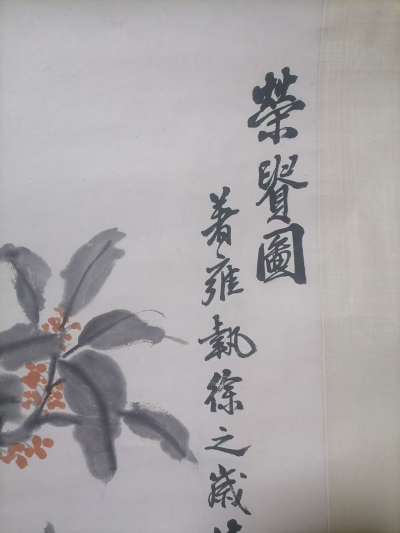 榮貴圖
著雍執徐之歲